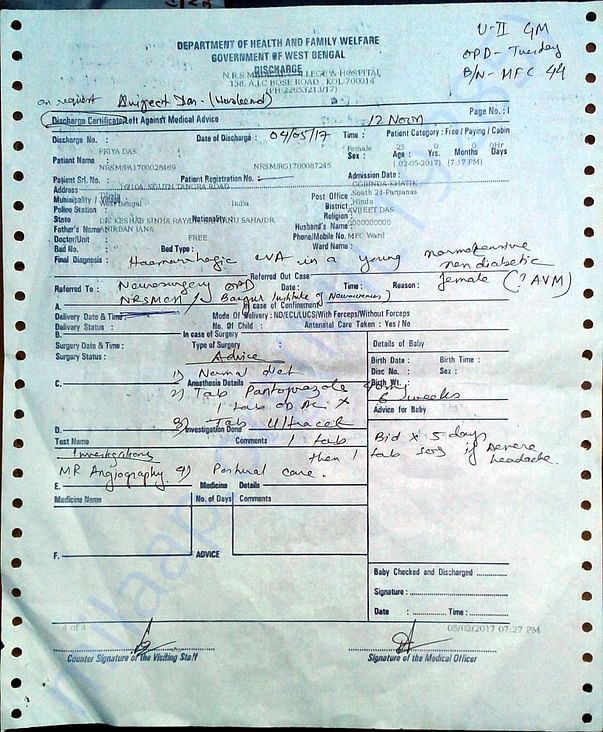 U-II GM
OPD - Tuesday
B/N - MFC 44
DEPARTMENT OF HEALTH AND FAMILY WELFARE
GOVERNMENT OF WEST BENGAL
DISCHARGE
N.R.S COLLEGE & HOSPITAL
138, A.J.C BOSE ROAD, KOL 700014
(PH:22653213/17)
on request Avijeet Das. (Husband)
12 Noon
Discharge Certificate/Left Against Medical Advice
Page No.: 1
Discharge No. :
Date of Discharge : 04/05/17
Time :
Patient Category : Free / Paying / Cabin
PRIYA DAS
Female
Patient Name
Sex :
Age : Yrs. Months Days
NRSM/PA1700028469
NRSM/RG1700087245
(02-05-2017) (7:17 PM)
Patient Srl. No. :
Patient Registration No. :
Admission Date :
Address
SOUTH TANGRA ROAD
GOBINDA KHATIK
Municipality / Village
Post Office
South 24-Parganas
Police Station :
West Bengal
India
District
Hindu
State
Nationality
Religion :
AVIJEET DAS
DR. KESHAB SINHA RAY
Father's Name
NIRBAN JANA
Husband's Name :
0000000000
Doctor/Unit :
FREE
Phone/Mobile No.
MFC Ward
Bed No.
Bed Type :
Ward Name :
Final Diagnosis : Haemorrhagic CVA in a young normotensive
nondiabetic
female (? AVM)
Referred Out Case
Referred To : Neurosurgery OPD
Date :
Time :
Reason :
NRSMCH / Bangur Institute of Neurosciences)
A.
In case of Confinement
Delivery Date & Time :
Mode Of Delivery : ND/ECL/LUCS/With Forceps/Without Forceps
Delivery Status :
No. Of Child :
Antenatal Care Taken : Yes / No
B.
In case of Surgery
Details of Baby
Surgery Date & Time :
Type of Surgery
Surgery Status :
Advice
Birth Date :
Birth Time :
Disc No. :
Sex :
1) Normal diet
C.
Anesthesia Details
Birth Wt.
2) Tab Pantoprazole
1 tab OD AC x 6 weeks
Advice for Baby
3) Tab Ultracet
D.
Investigation Done
Test Name
Comments
1 tab Bid x 5 days
then 1 tab SOS if severe
headache
Investigations
MR Angiography
4) Postural care.
E.
Medicine Details
Medicine Name
No. of Days
Comments
F.
ADVICE
Baby Checked and Discharged
Signature :
Date :
Time :
4 of 4
05/02/2017 07:27 PM
Counter Signature of the Visiting Staff
Signature of the Medical Officer